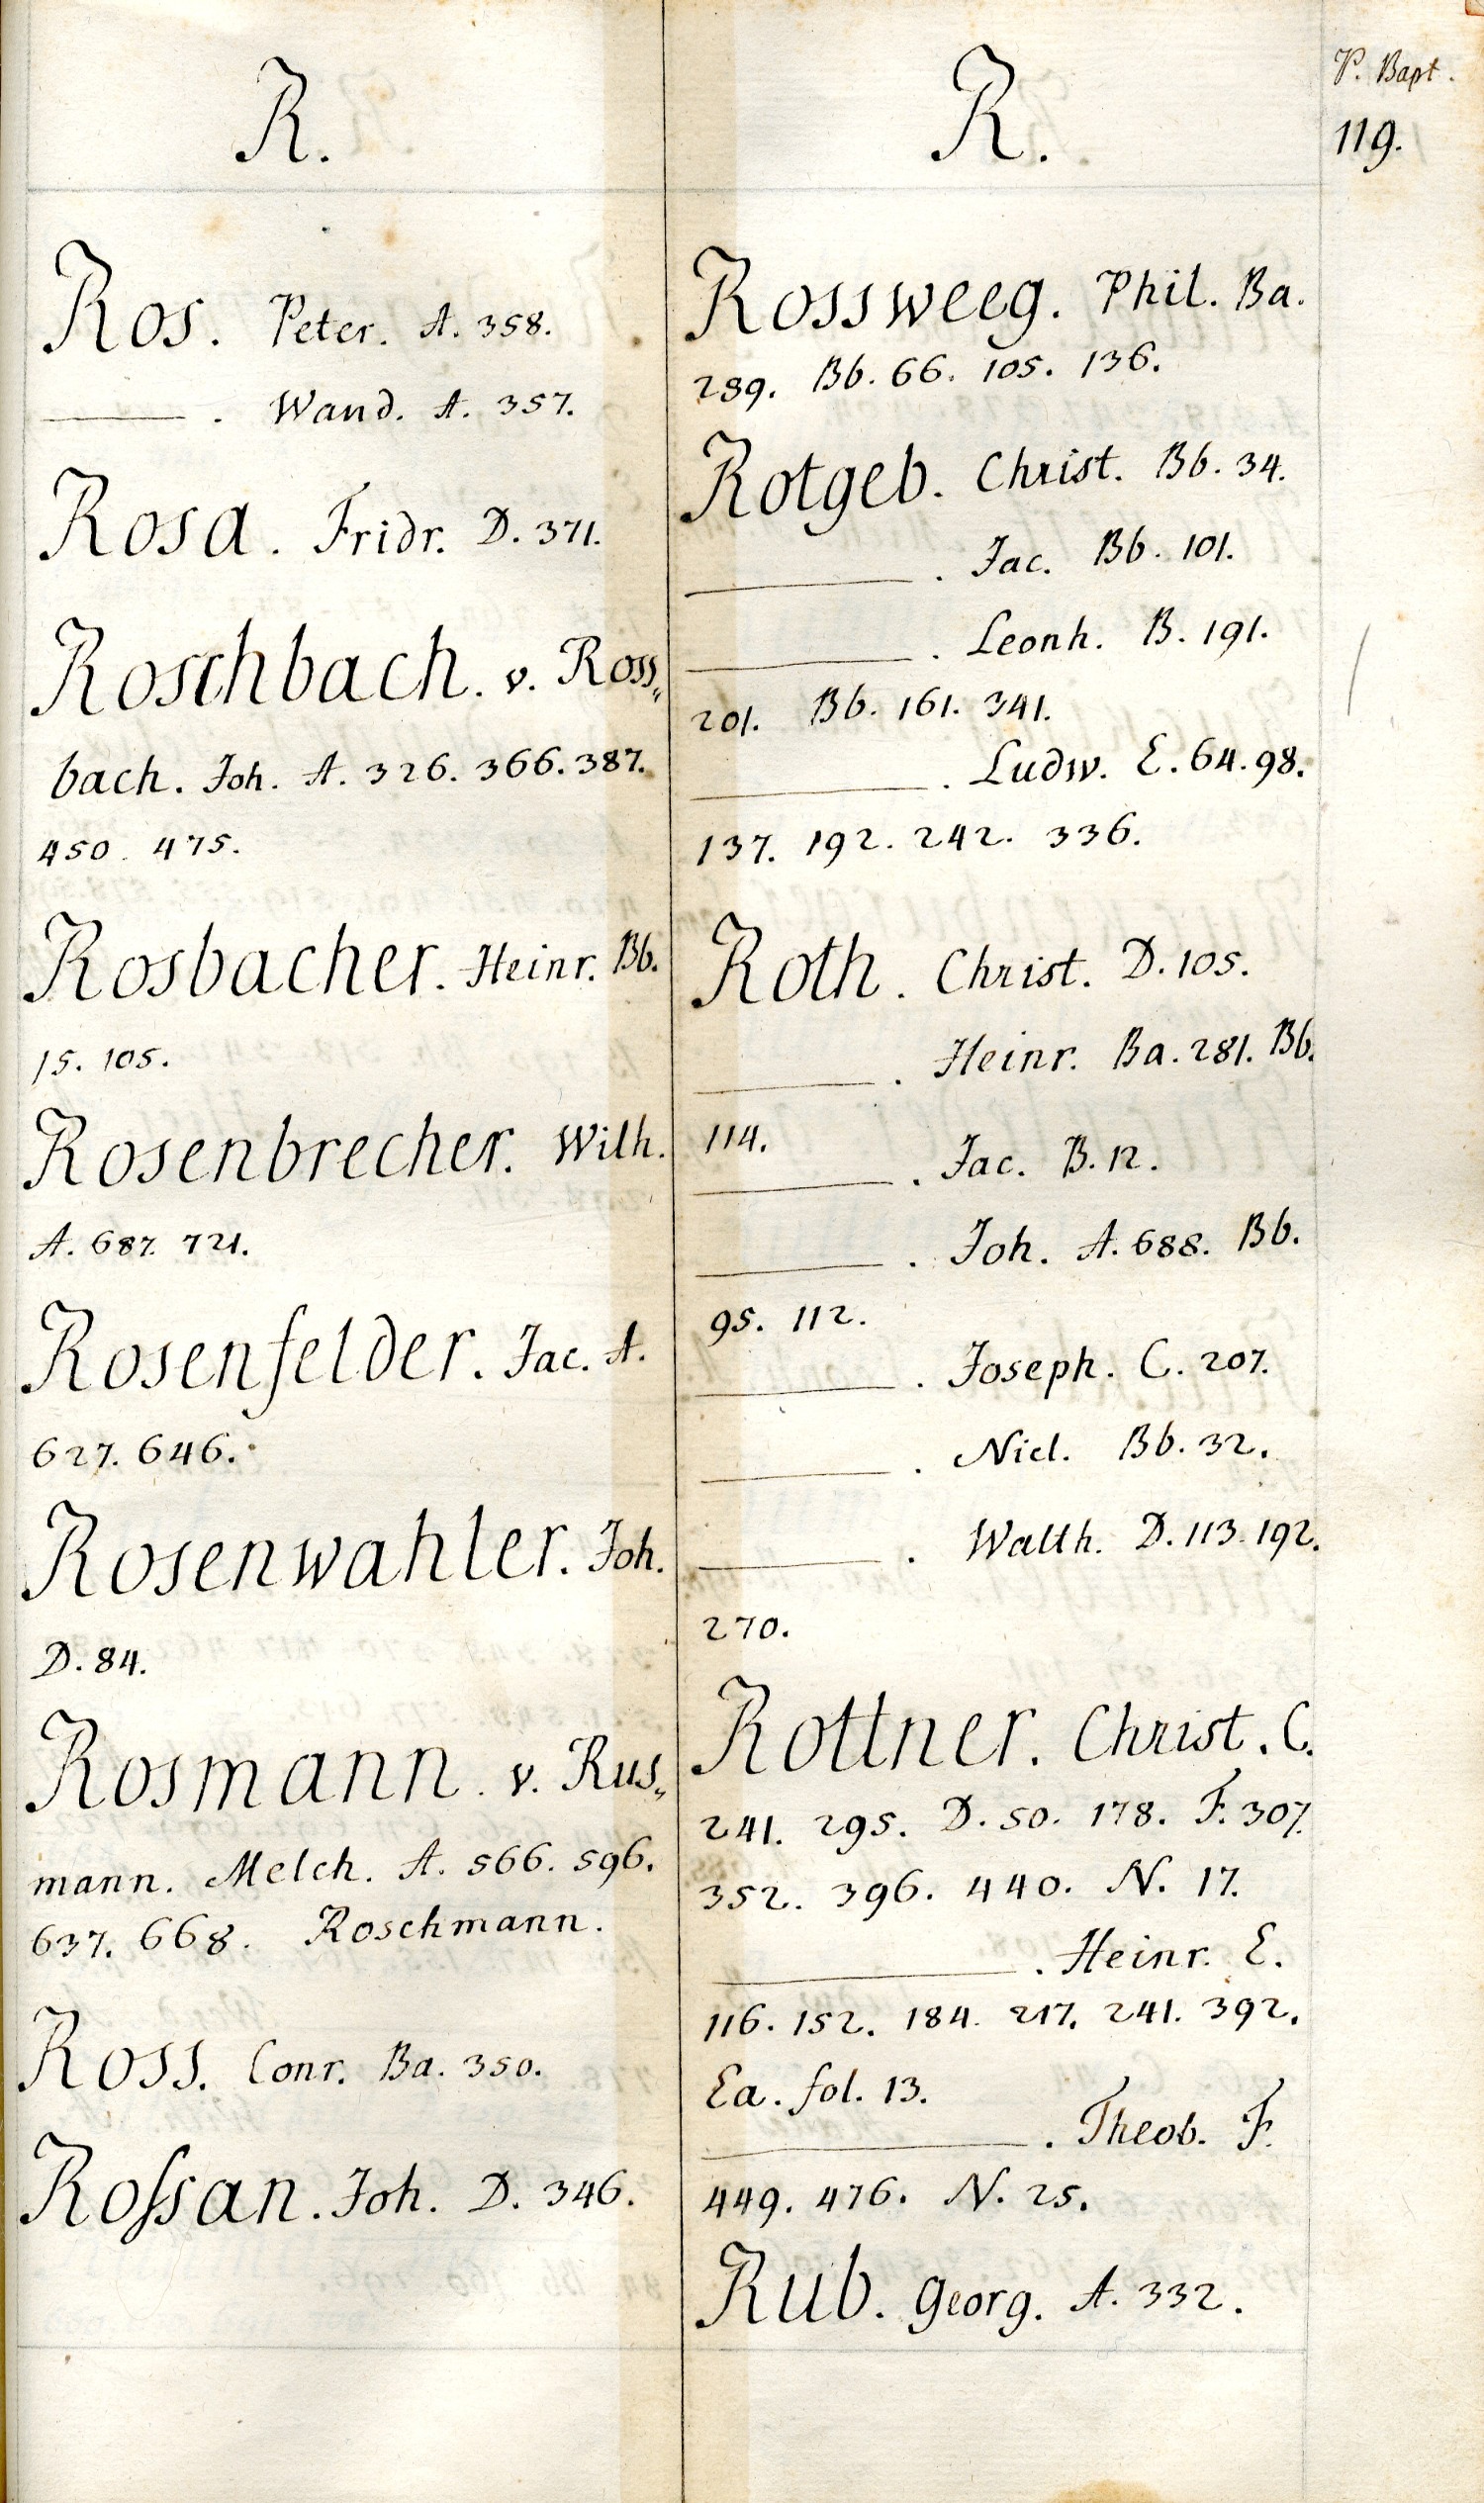 R.
Ros. Peter. A. 358.
——— . Wand. A. 357.
Rosa. Fridr. D. 371.
Roschbach. v. Ross„
bach. Joh. A. 326. 366. 387.
450. 475.
Rosbacher. Heinr. Bb.
15. 105.
Rosenbrecher. Wilh.
A. 687. 721.
Rosenfelder. Jac. A.
627. 646.
Rosenwahler. Joh.
D. 84.
Rosmann. v. Rus„
mann. Melch. A. 566. 596.
637. 668. Roschmann.
Ross. Conr. Ba. 350.
Roſsan. Joh. D. 346.
R.
Rossweeg. Phil. Ba.
289. Bb. 66. 105. 136.
Rotgeb. Christ. Bb. 34.
——— . Jac. Bb. 101.
——— . Leonh. B. 191.
201. Bb. 161. 341.
——— . Ludw. E. 64. 98.
137. 192. 242. 336.
Roth. Christ. D. 105.
——— . Heinr. Ba. 281. Bb.
114.
——— . Jac. B. 12.
——— . Joh. A. 688. Bb.
95. 112.
——— . Joseph. C. 207.
——— . Nicl. Bb. 32.
——— . Walth. D. 113. 192.
270.
Rottner. Christ. C.
241. 295. D. 50. 178. F. 307.
352. 396. 440. N. 17.
——— . Heinr. E.
116. 152. 184. 217. 241. 392.
Ea. fol. 13.
——— . Theob. F.
449. 476. N. 25.
Rub. Georg. A. 332.
P. Bapt.
119.